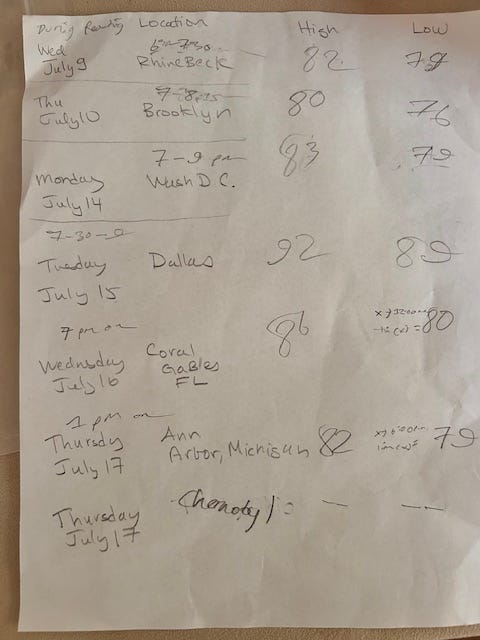 During Reading Location High Low
Wed 6 - 7:30
July 9 RhineBeck 82 79
Thu 7-8:15
July 10 Brooklyn 80 76
7 - 9 pm 83 79
Monday Wash D.C.
July 14
7-30-9
Tuesday Dallas 92 89
July 15
7 pm on 86 80
Wednsday Coral
July 16 Gables
FL
1 pm on
Thursday Ann
July 17 Arbor, Michigan 82 79
Thursday — —
July 17